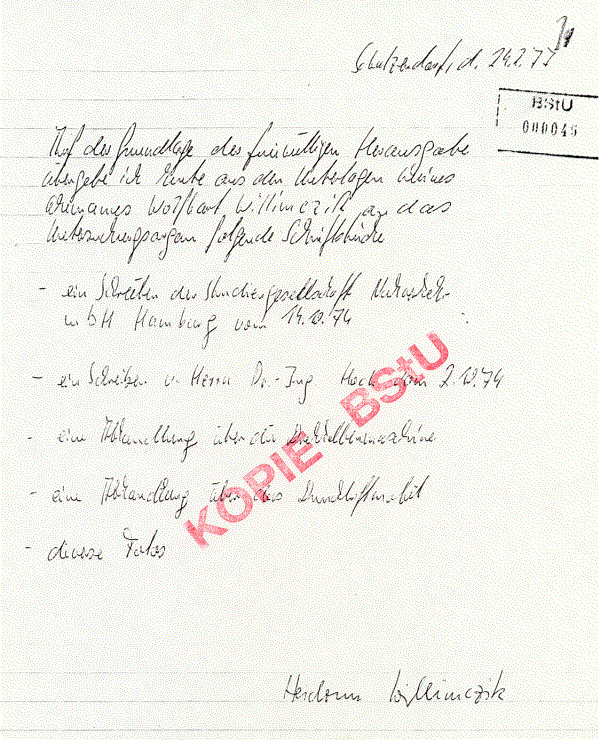 d. 24.2.77
BStU
000045
Auf der Grundlage der freiwilligen Herausgabe
übergebe ich heute aus den Unterlagen meines
Ehemannes Wolfhart Willimczik an das
Untersuchungsorgan folgende Schriftstücke
- ein Schreiben der Studiengesellschaft Nahverkehr
mbH Hamburg vom 14.10.74
- ein Schreiben v. Herrn Dr.-Ing vom 2.10.74
- eine Abhandlung über die Drehkolbenmaschine
- eine Abhandlung über das Druckluftmobil
- diverse Fotos
KOPIE BStU
Willimczik